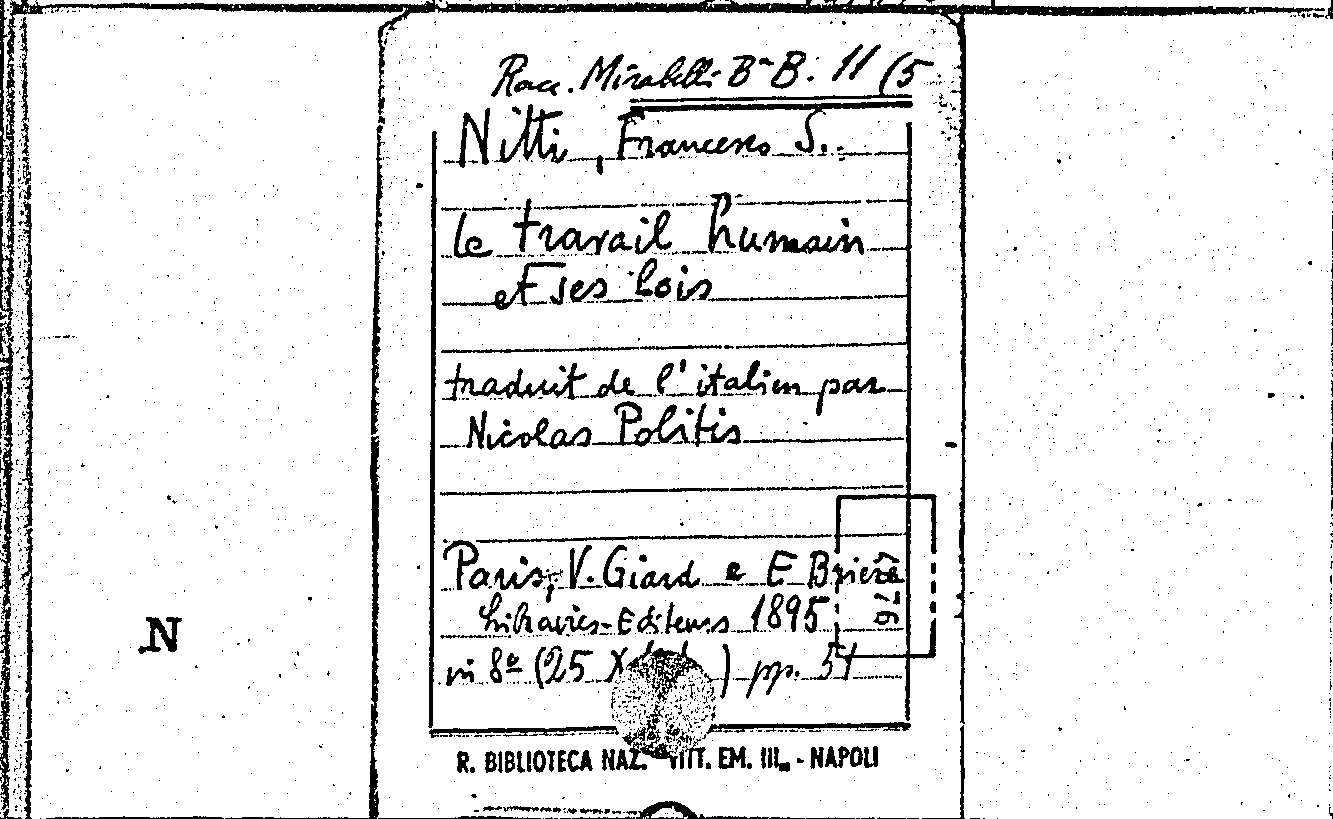 Racc. Mirabelli B-B. 11 (5
Nitti, Francesco S..
Le travail humain
et ses lois
traduit de l'italien par
Nicolas Politis
Paris, V. Giard e E Brière
Libraires-Editeurs 1895
in 8º (25 X ) pp. 51
N
R. BIBLIOTECA NAZ. VITT. EM. III. - NAPOLI